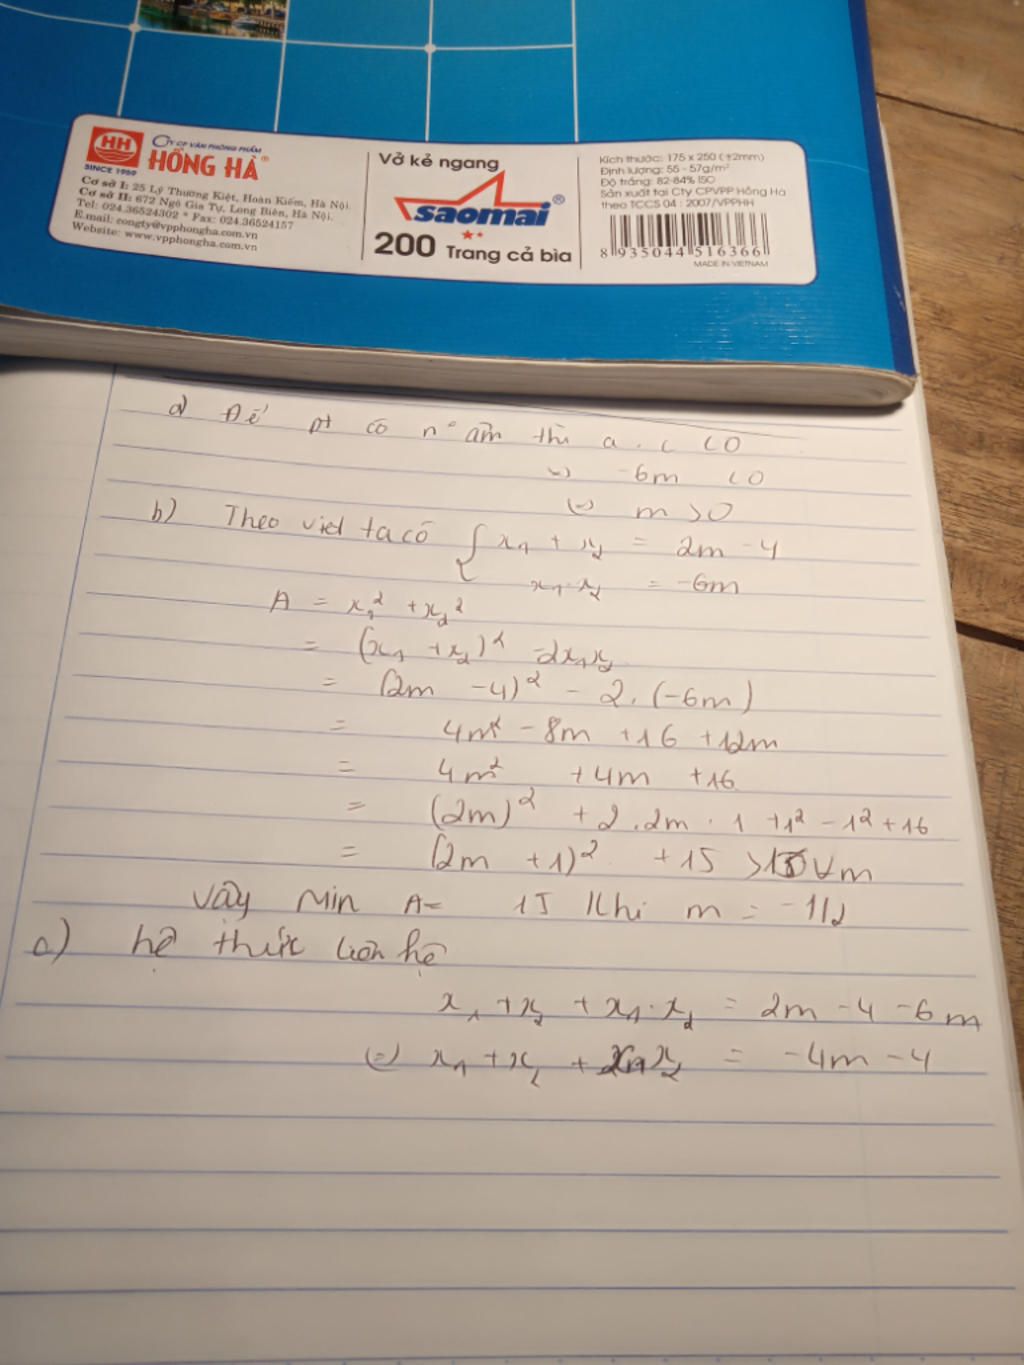 HH
SINCE 1959
CTY CP VĂN PHÒNG PHẨM
HỒNG HÀ®
Cơ sở I: 25 Lý Thường Kiệt, Hoàn Kiếm, Hà Nội.
Cơ sở II: 672 Ngô Gia Tự, Long Biên, Hà Nội.
Tel: 024.36524302 * Fax: 024.36524157
E.mail: congty@vpphongha.com.vn
Website: www.vpphongha.com.vn
Vở kẻ ngang
saomai®
200 Trang cả bìa
Kích thước: 175 x 250 (±2mm)
Định lượng: 55 - 57g/m²
Độ trắng: 82-84% ISO
Sản xuất tại Cty CPVPP Hồng Hà
theo TCCS 04 : 2007/VPPHH
8 935044 516366
MADE IN VIETNAM
a) Để pt có n° âm thì a . c < 0
(=) -6m < 0
(=) m > 0
b) Theo viet ta có { x₁ + x₂ = 2m - 4
x₁ . x₂ = -6m
A = x₁² + x₂²
= (x₁ + x₂)² - 2x₁x₂
= (2m - 4)² - 2.(-6m)
= 4m² - 8m + 16 + 12m
= 4m² + 4m + 16
= (2m)² + 2.2m . 1 + 1² - 1² + 16
= (2m + 1)² + 15 > 15 ∀m
Vậy Min A = 15 khi m = -1/2
c) hệ thức liên hệ
x₁ + x₂ + x₁ . x₂ = 2m - 4 - 6m
(=) x₁ + x₂ + x₁x₂ = -4m - 4